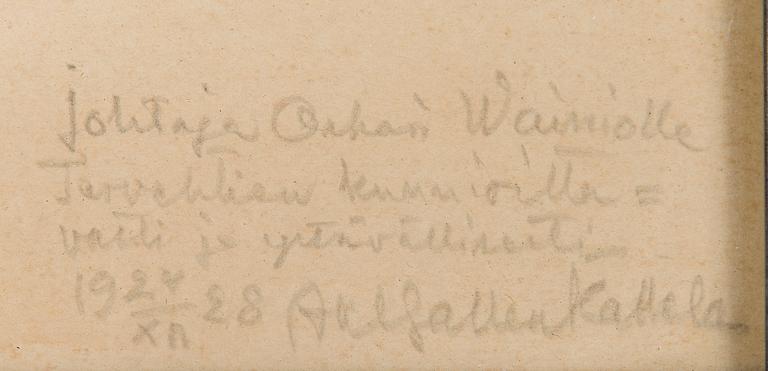 johtaja Oskari Wainiolle
Tervehtien kunnioitta=
vasti ja ystävällisesti
1924/XII 28 Kallela